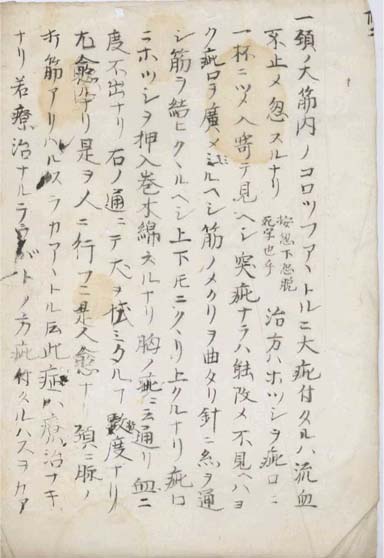 一頚ノ大筋内ノコロツファートルニ大疵付クルハ流血
不止メ忽スルナリ 按忽下恐脱死字也乎 治方ハホツシヲ疵口ニ
一杯ニツメ入寄テ見ヘシ突疵ナラハ能改メ不見ヘハヨ
ク疵口ヲ廣メミルヘシ筋ノメクリヲ曲タリ針ニ糸ヲ通
シ筋ヲ結ヒクヽルヘシ上下モニクヽリ上クルナリ疵口
ニホツシヲ押入巻木綿スルナリ胸ノ疵ニ云通リ血ニ
度不出ナリ右ノ通ニテ犬ヲ様ミクルフ数度ナリ
尤愈ルナリ是ヲ人ニ行フニ是又愈ナリ頚ニ脉ノ
筋アリハルスラカアートル云此疵ハ療治ナキ
ナリ若療治ナルラ ハトノ方疵付クルハスヲカア